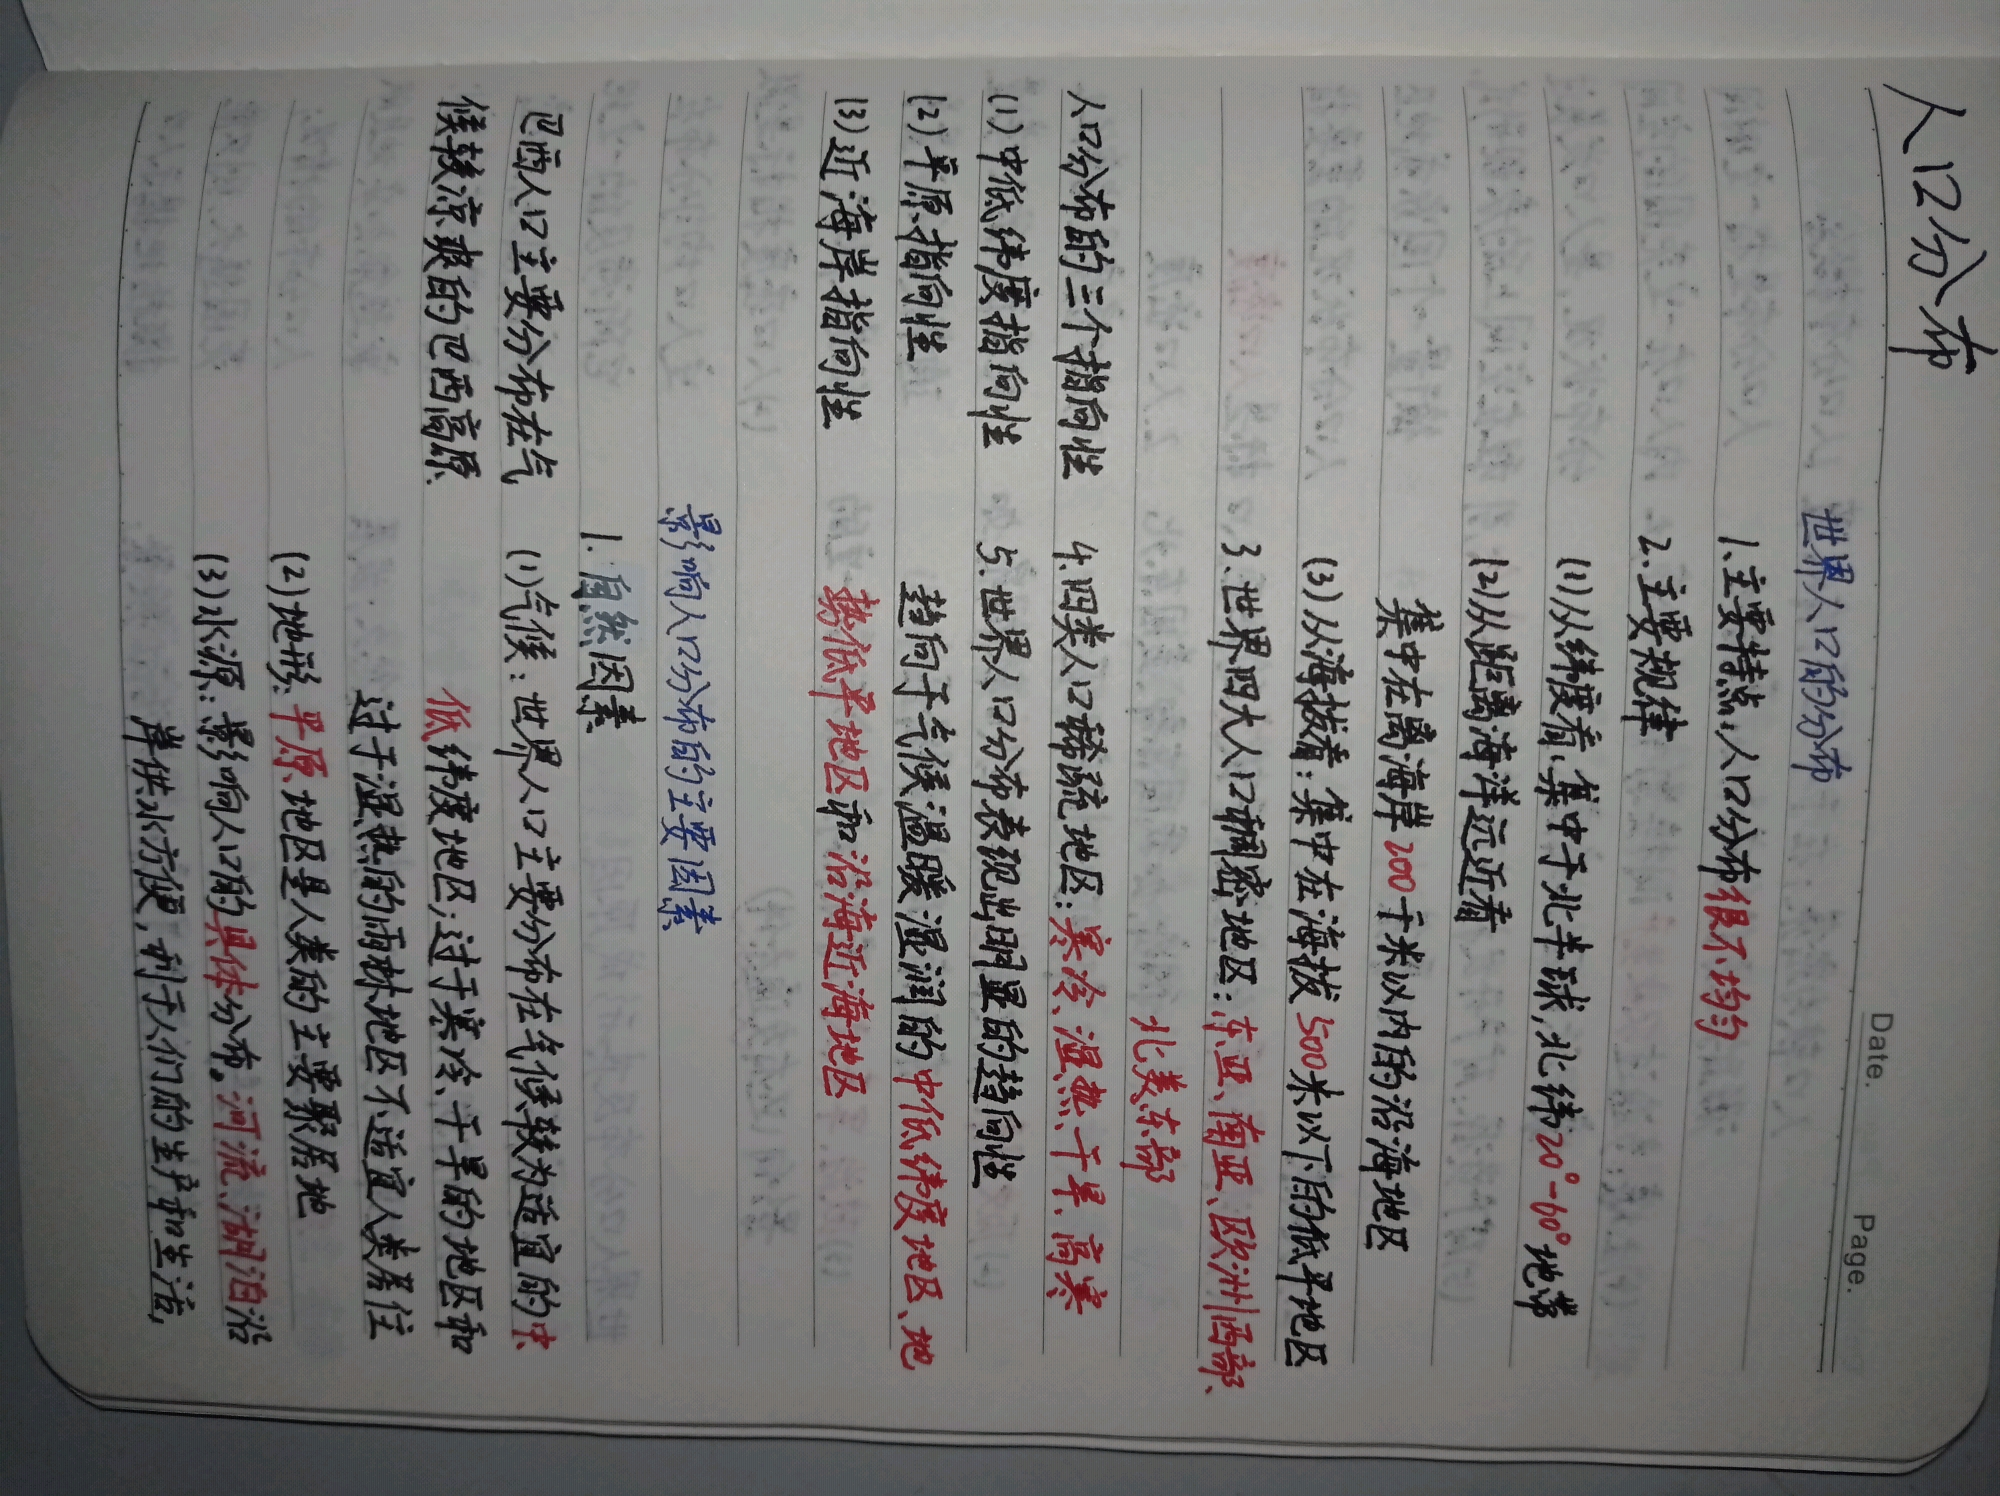 人口分布
Date. Page.
世界人口的分布
1.主要特点:人口分布很不均匀
2.主要规律
(1)从纬度看,集中于北半球,北纬20°-60°地带
(2)从距离海洋远近看
集中在离海岸200千米以内的沿海地区
(3)从海拔看:集中在海拔500米以下的低平地区
3.世界四大人口稠密地区:东亚、南亚、欧洲西部、
北美东部
人口分布的三个指向性
4.四类人口稀疏地区:寒冷、湿热、干旱、高寒
(1)中低纬度指向性
5.世界人口分布表现出明显的趋向性
(2)平原指向性
趋向于气候温暖湿润的中低纬度地区、地
(3)近海岸指向性
势低平地区和沿海近海地区
影响人口分布的主要因素
1.自然因素
巴西人口主要分布在气
(1)气候:世界人口主要分布在气候较为适宜的中、
候较凉爽的巴西高原
低纬度地区;过于寒冷、干旱的地区和
过于湿热的雨林地区不适宜人类居住
(2)地形:平原地区是人类的主要聚居地
(3)水源:影响人口的具体分布。河流、湖泊沿
岸供水方便,利于人们的生产和生活,